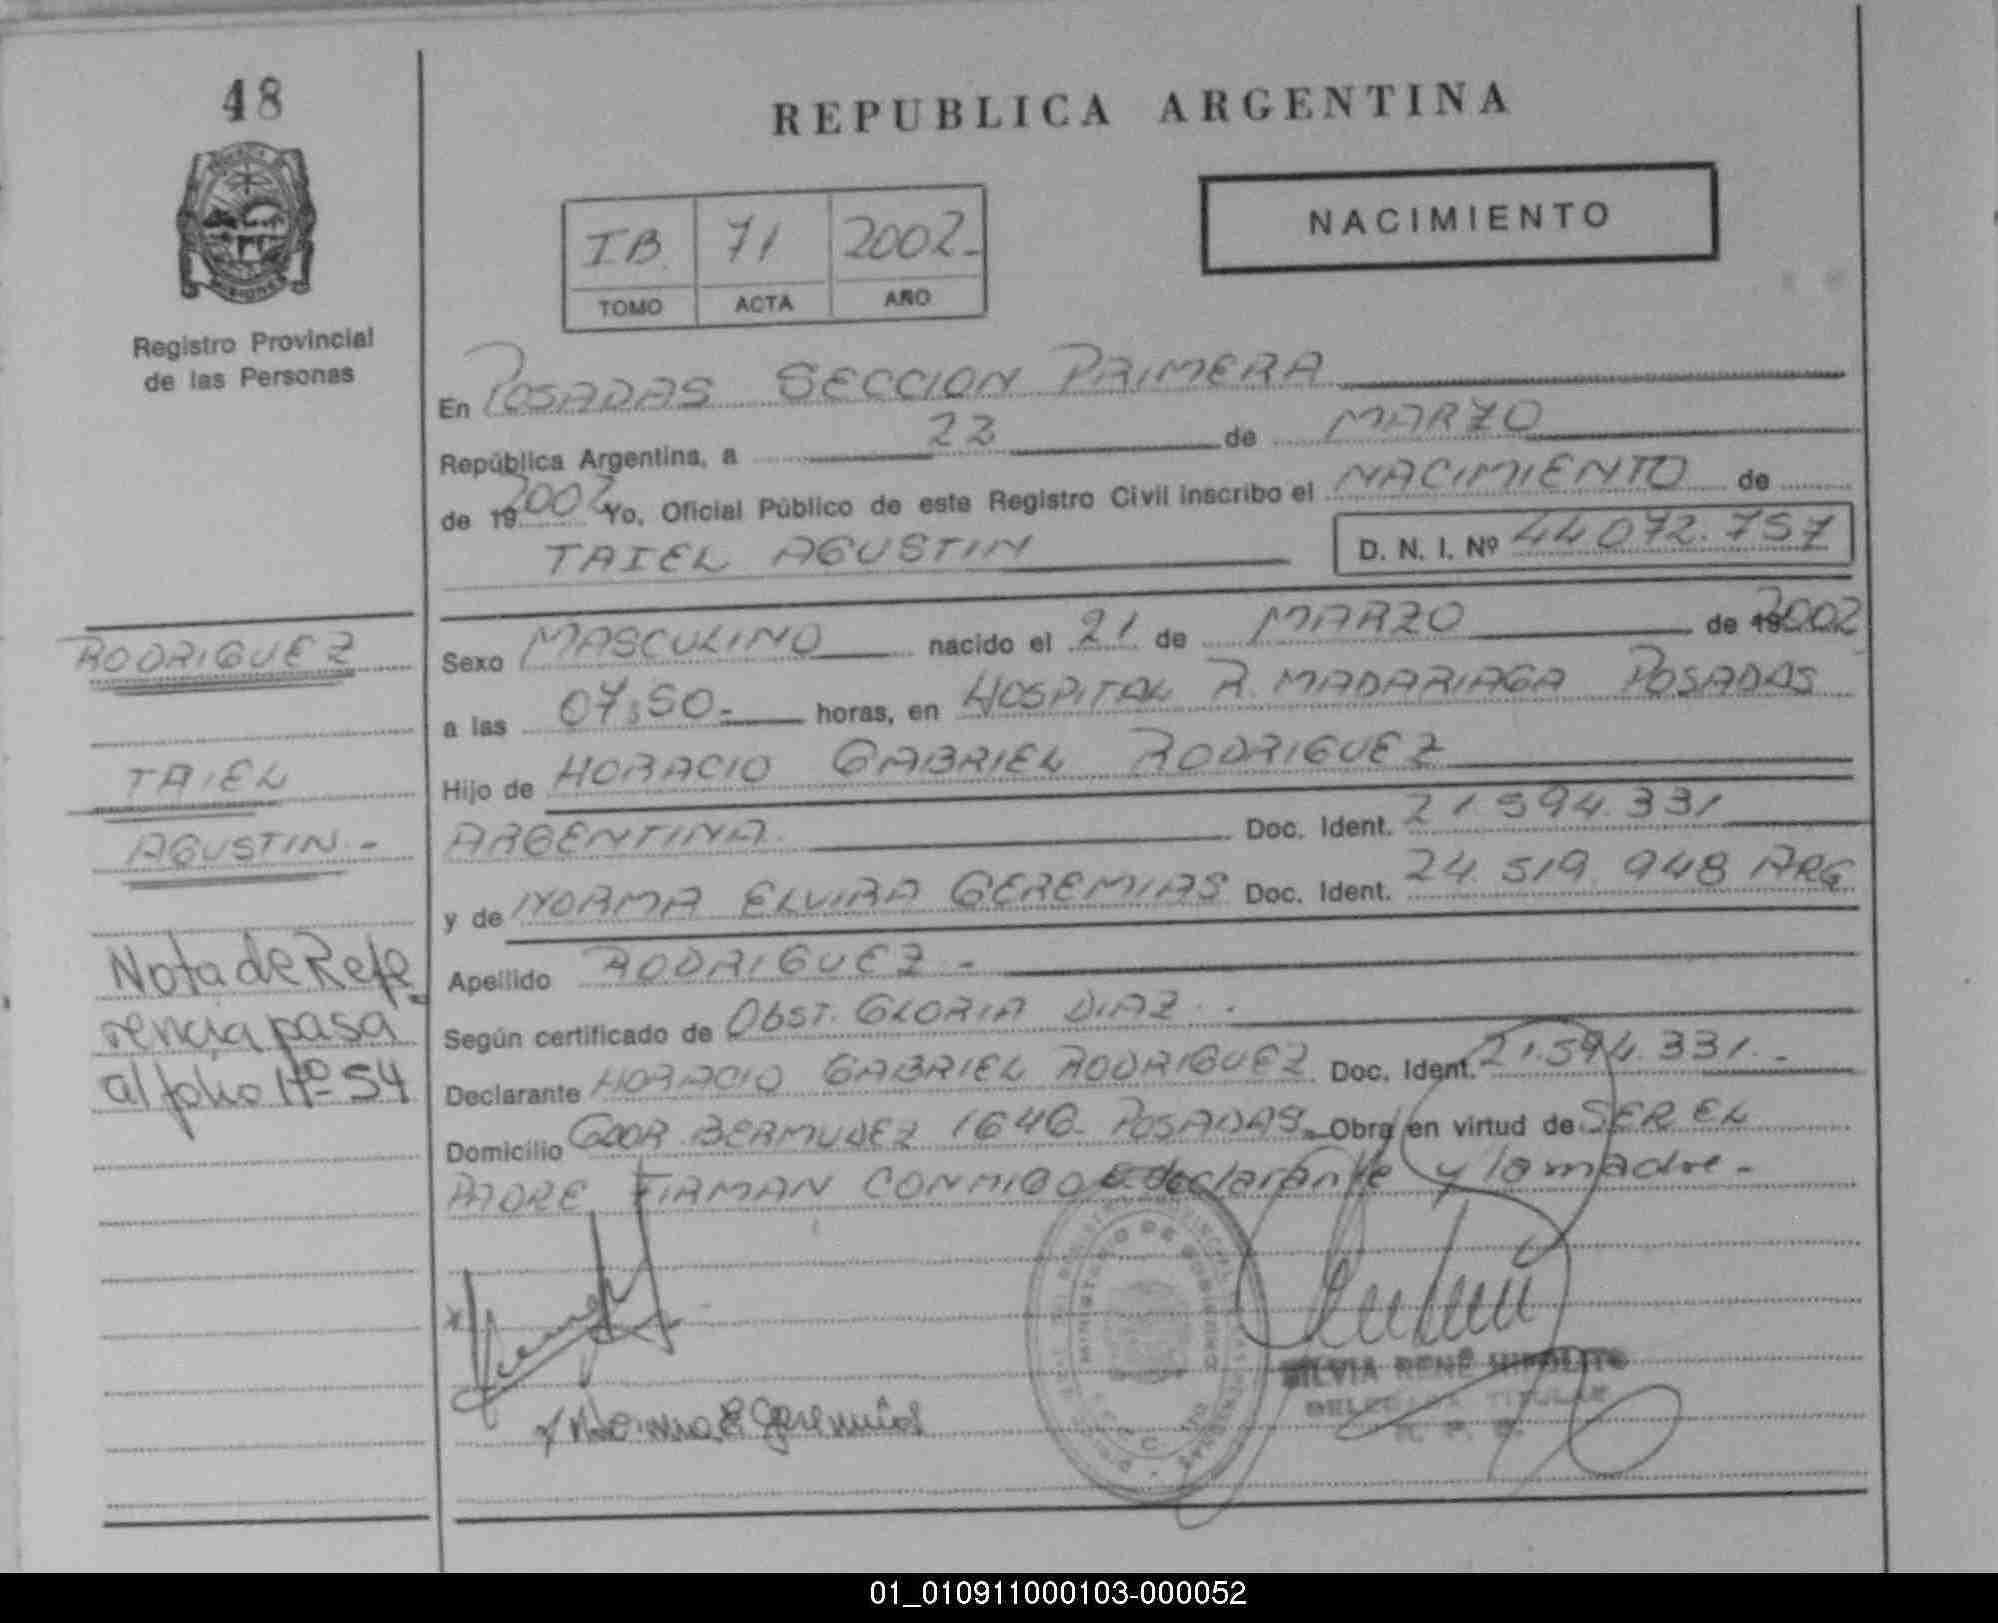 48
REPUBLICA ARGENTINA
NACIMIENTO
IB 71 2002-
TOMO ACTA AÑO
Registro Provincial
de las Personas
En POSADAS SECCION PRIMERA
República Argentina, a 22 de MARZO
de 19 2002 Yo, Oficial Público de este Registro Civil inscribo el NACIMIENTO de
TAIEL AGUSTIN D. N. I. Nº 44072.757
RODRIGUEZ
TAIEL
AGUSTIN -
Nota de Refe
rencia pasa
al folio Nº 54
Sexo MASCULINO nacido el 21 de MARZO de 19 2002
a las 07:50- horas, en HOSPITAL R. MADARIAGA POSADAS
Hijo de HORACIO GABRIEL RODRIGUEZ
ARGENTINA Doc. Ident. 21.594.331
y de NORMA ELVIRA GEREMIAS Doc. Ident. 24.519.948 ARG
Apellido RODRIGUEZ -
Según certificado de OBST. GLORIA DIAZ.-
Declarante HORACIO GABRIEL RODRIGUEZ Doc. Ident. 21.594.331.-
Domicilio GDOR. BERMUDEZ 1646 POSADAS. Obra en virtud de SER EL
PADRE FIRMAN CONMIGO declarante y la madre -
MINISTERIO DE GOBIERNO
x Norma E Geremias
SILVIA RENÉ HIPOLITO
DELEGADA TITULAR
01_010911000103-000052